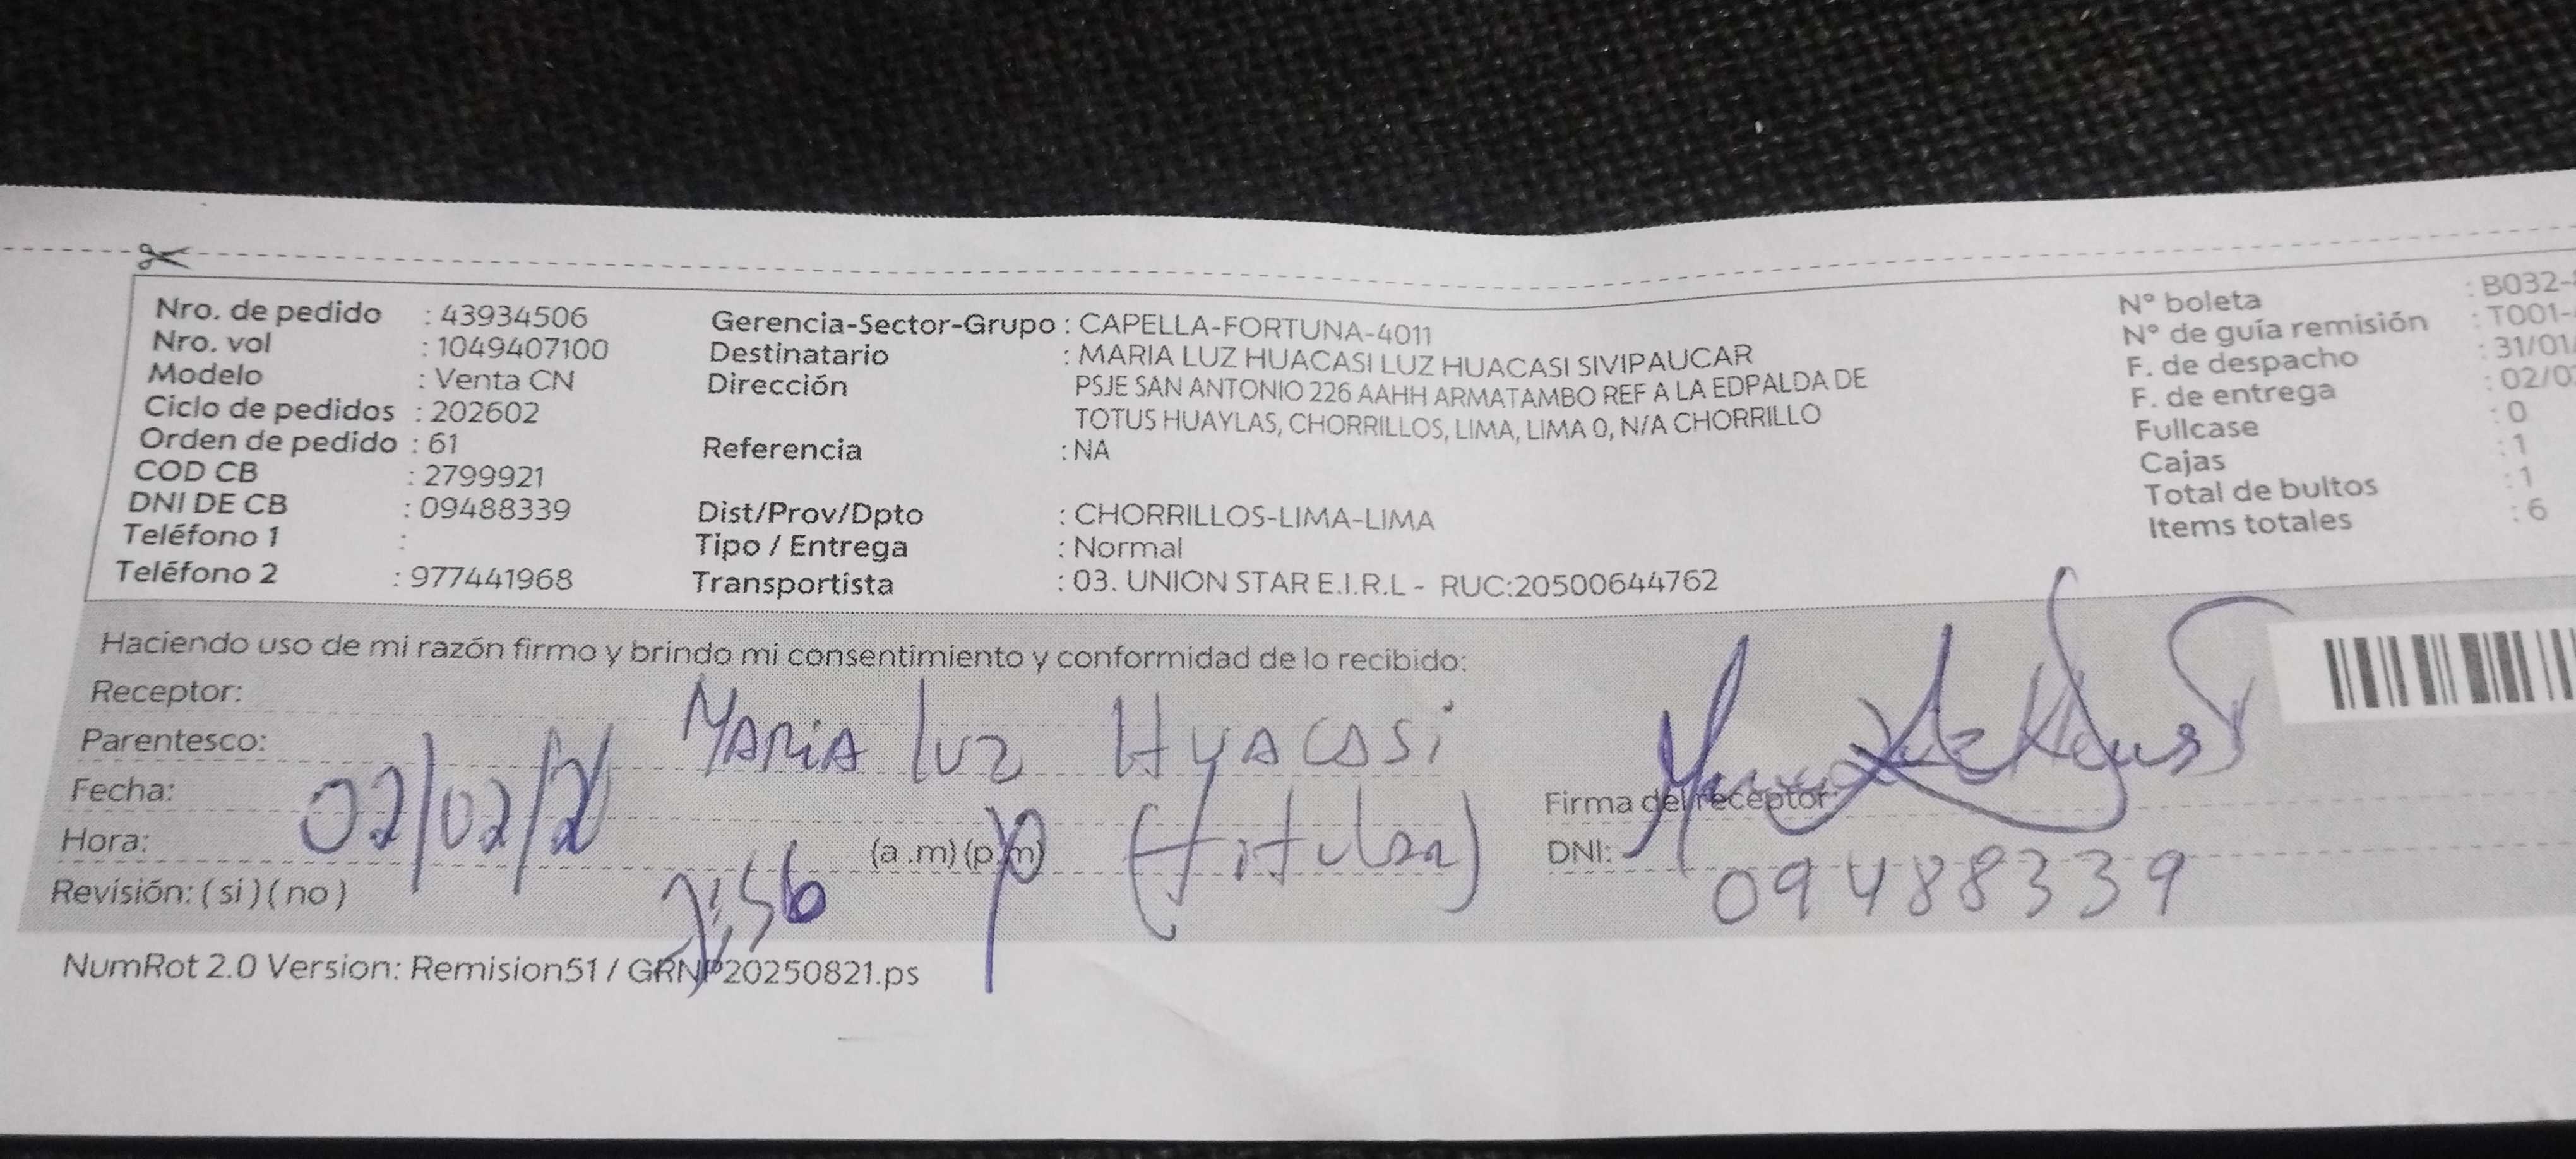 Nro. de pedido : 43934506
Nro. vol : 1049407100
Modelo : Venta CN
Ciclo de pedidos : 202602
Orden de pedido : 61
COD CB : 2799921
DNI DE CB : 09488339
Teléfono 1 :
Teléfono 2 : 977441968
Gerencia-Sector-Grupo : CAPELLA-FORTUNA-4011
Destinatario : MARIA LUZ HUACASI LUZ HUACASI SIVIPAUCAR
Dirección PSJE SAN ANTONIO 226 AAHH ARMATAMBO REF A LA EDPALDA DE
TOTUS HUAYLAS, CHORRILLOS, LIMA, LIMA 0, N/A CHORRILLO
Referencia : NA
Dist/Prov/Dpto : CHORRILLOS-LIMA-LIMA
Tipo / Entrega : Normal
Transportista : 03. UNION STAR E.I.R.L - RUC:20500644762
N° boleta : B032-
N° de guía remisión : T001-
F. de despacho : 31/01/
F. de entrega : 02/0
Fullcase : 0
Cajas : 1
Total de bultos : 1
Items totales : 6
Haciendo uso de mi razón firmo y brindo mi consentimiento y conformidad de lo recibido:
Receptor:
Parentesco: MARIA LUZ HUACASI
Fecha: 02/02/2
Hora: (a .m) (p.m) (titular)
Revisión: ( si ) ( no )
Firma del receptor:
DNI: 09488339
NumRot 2.0 Version: Remision51 / GRNP20250821.ps